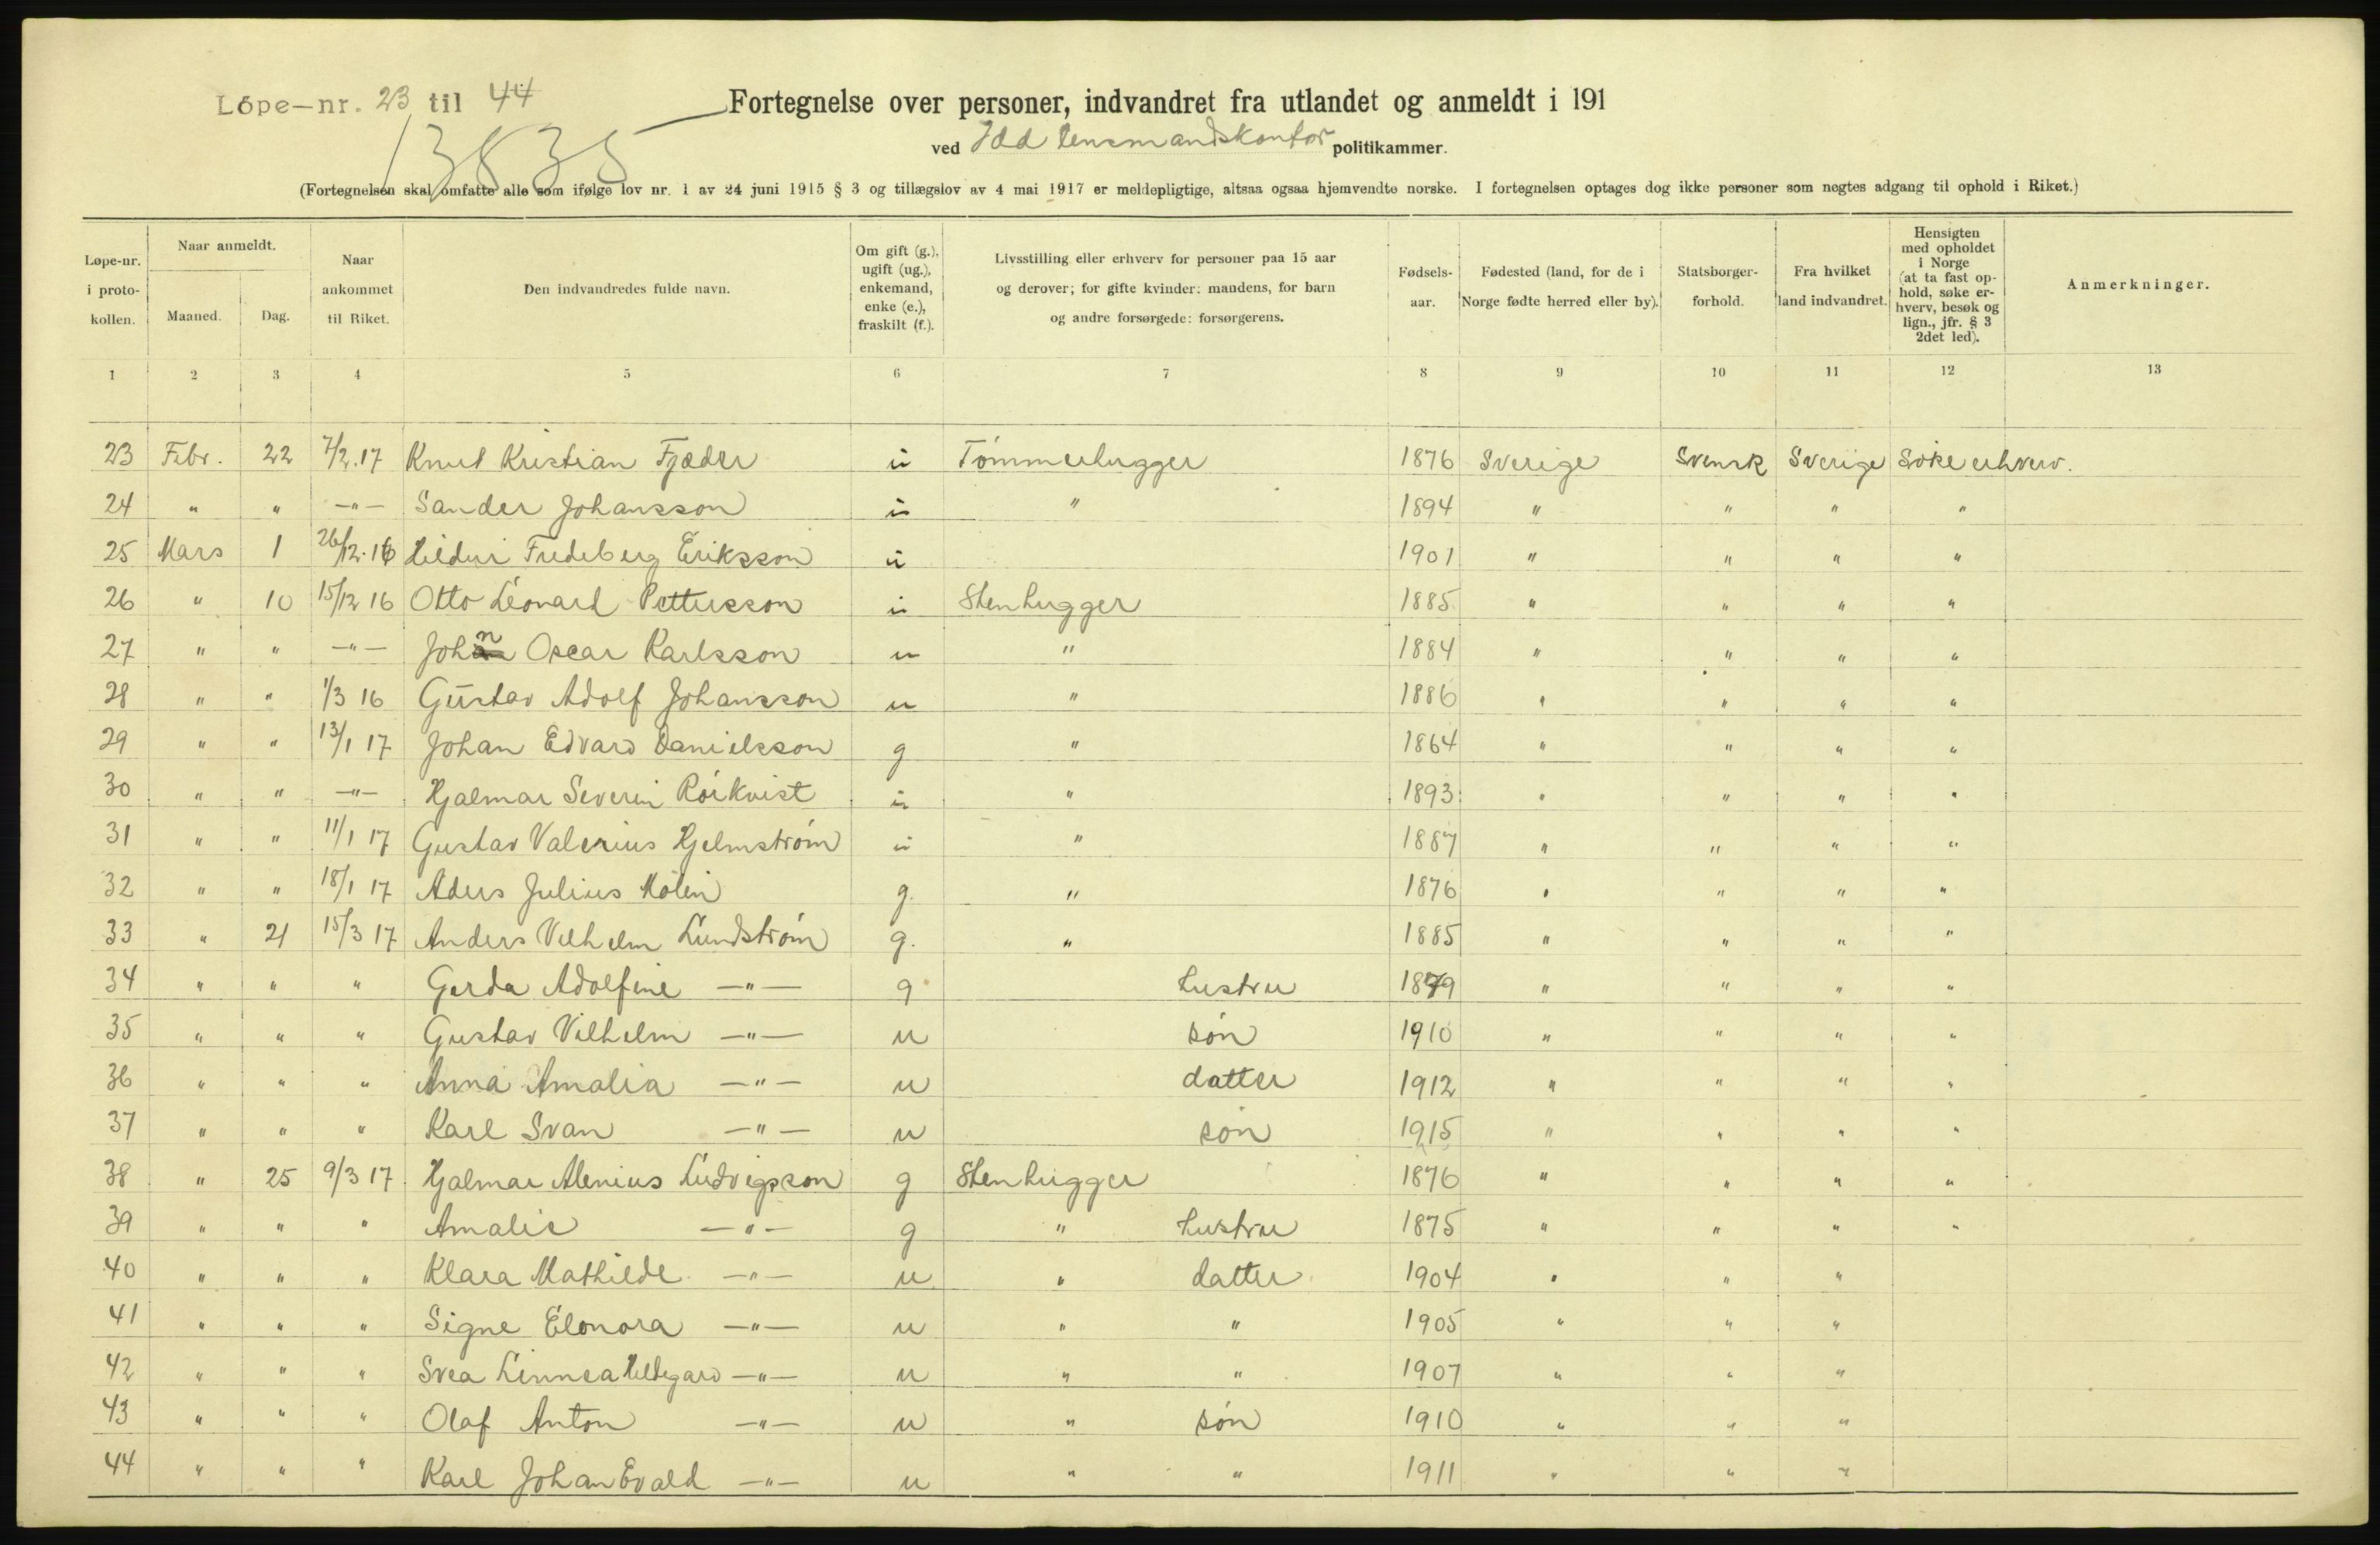 Løpe-nr. 23 til 44
Fortegnelse over personer, indvandret fra utlandet og anmeldt i 191
13835
ved Idd lensmandskontor politikammer.
(Fortegnelsen skal omfatte alle som ifølge lov nr. 1 av 24 juni 1915 § 3 og tillægslov av 4 mai 1917 er meldepligtige, altsaa ogsaa hjemvendte norske. I fortegnelsen optages dog ikke personer som negtes adgang til ophold i Riket.)
Løpe-nr. i proto-kollen.
Naar anmeldt.
Maaned. Dag.
Naar ankommet til Riket.
Den indvandredes fulde navn.
Om gift (g.), ugift (ug.), enkemand, enke (e.), fraskilt (f.).
Livsstilling eller erhverv for personer paa 15 aar og derover; for gifte kvinder: mandens, for barn og andre forsørgede: forsørgerens.
Fødsels-aar.
Fødested (land, for de i Norge fødte herred eller by).
Statsborger-forhold.
Fra hvilket land indvandret.
Hensigten med opholdet i Norge (at ta fast op-hold, søke er-hverv, besøk og lign., jfr. § 3 2det led).
Anmerkninger.
1 2 3 4 5 6 7 8 9 10 11 12 13
23 Febr. 22 7/2.17 Knut Kristian Fjæder u Tømmerhugger 1876 Sverige Svensk Sverige Søke erhverv.
24 " " -"- Sander Johansson u " 1894 " " " "
25 Mars 1 26/12.16 Hildur Fredeberg Eriksson u 1901 " " " "
26 " 10 15/12 16 Otto Leonard Pettersson u Stenhugger 1885 " " " "
27 " " -"- John Oscar Karlsson u " 1884 " " " "
28 " " 1/3 16 Gustav Adolf Johansson u " 1886 " " " "
29 " " 13/1 17 Johan Edvard Danielsson g " 1864 " " " "
30 " " -"- Hjalmar Severin Rörkvist u " 1893 " " " "
31 " " 11/1 17 Gustav Valerius Hjelmstrøm u " 1887 " " " "
32 " " 18/1 17 Aders Julius Molin g. " 1876 " " " "
33 " 21 15/3 17 Anders Vilhelm Lundstrøm g. " 1885 " " " "
34 " " " Gerda Adolfine -"- g hustru 1879 " " " "
35 " " " Gustav Vilhelm -"- u søn 1910 " " " "
36 " " " Anna Amalia -"- u datter 1912 " " " "
37 " " " Karl Svan -"- u søn 1915 " " " "
38 " 25 9/3 17 Hjalmar Alenius Ludvigsson g Stenhugger 1876 " " " "
39 " " " Amalie -"- g " hustru 1875 " " " "
40 " " " Klara Mathilde -"- u " datter 1904 " " "
41 " " " Signe Elonora -"- u " " 1905 " " "
42 " " " Svea Linnea Hildegard -"- u " " 1907 " " "
43 " " " Olaf Anton -"- u " søn 1910 " " "
44 " " " Karl Johan Evald -"- u " " 1911 " " "